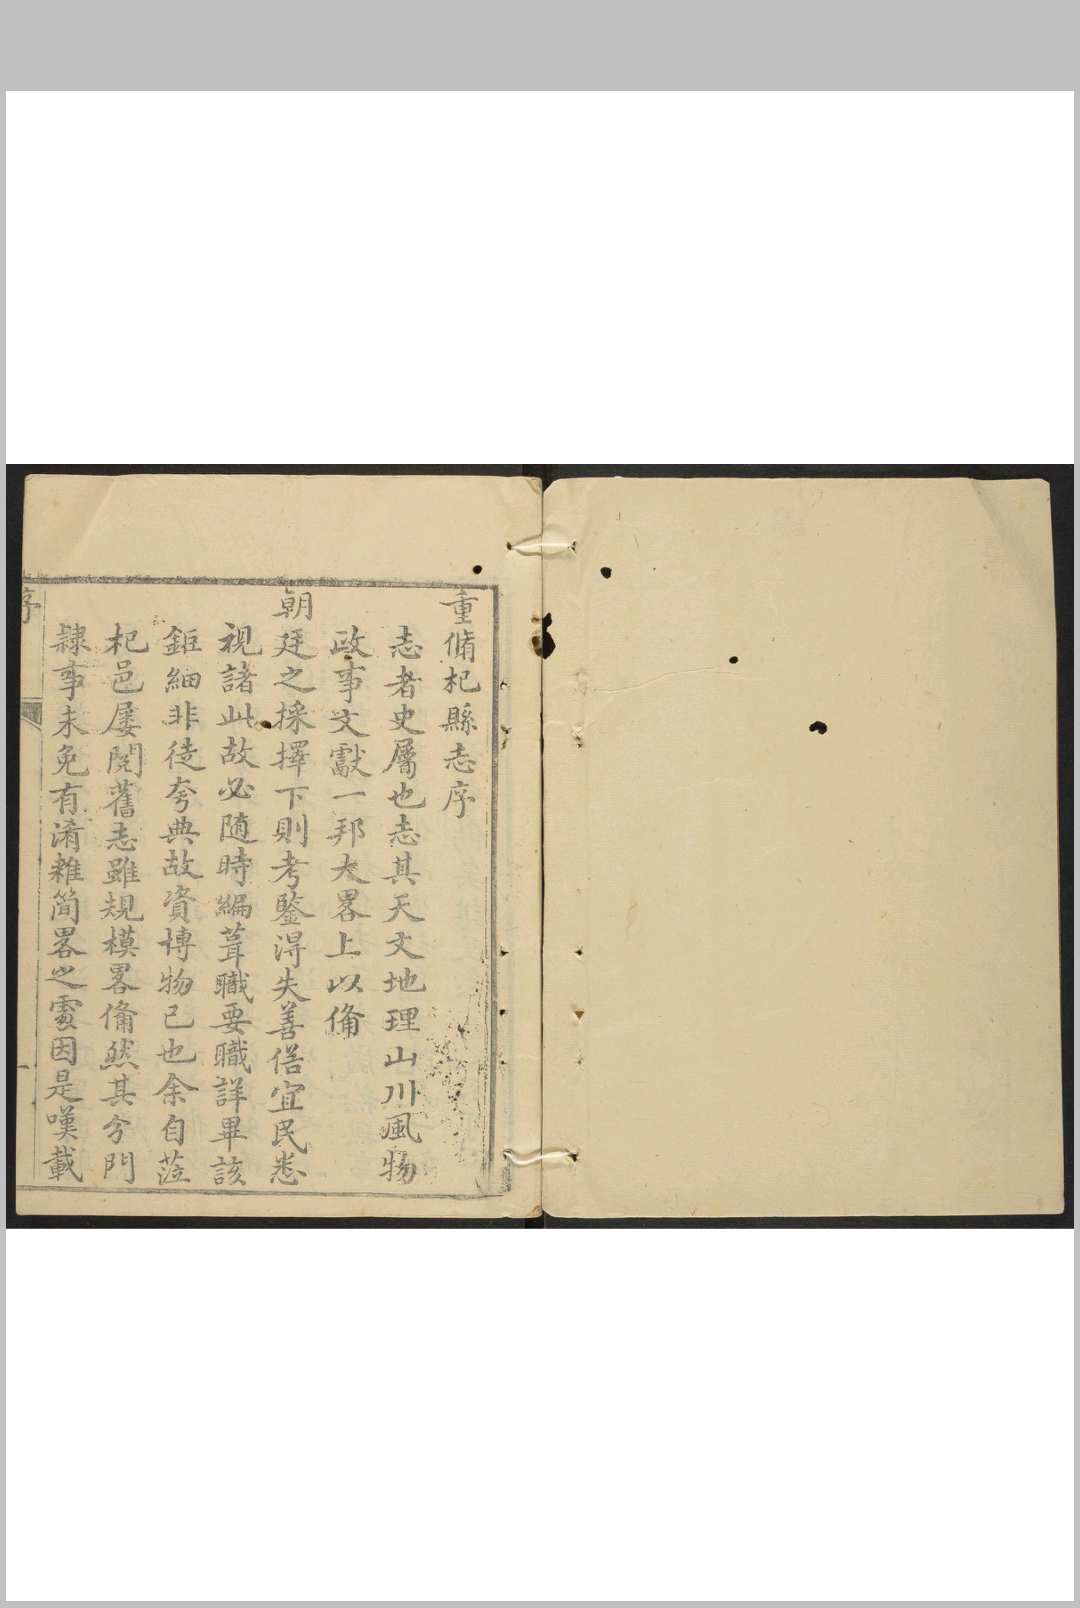 重脩杞縣志序
志者史屬也志其天文地理山川風物
政事文獻一邦大畧上以備
朝廷之採擇下則考鑒得失善俗宜民悉
視諸此故必随時編葺職要職詳畢該
鉅細非徒夸典故資博物已也余自蒞
杞邑屢閱舊志雖規模畧備然其分門
隸事未免有淆雜简畧之處因是嘆載
序
一